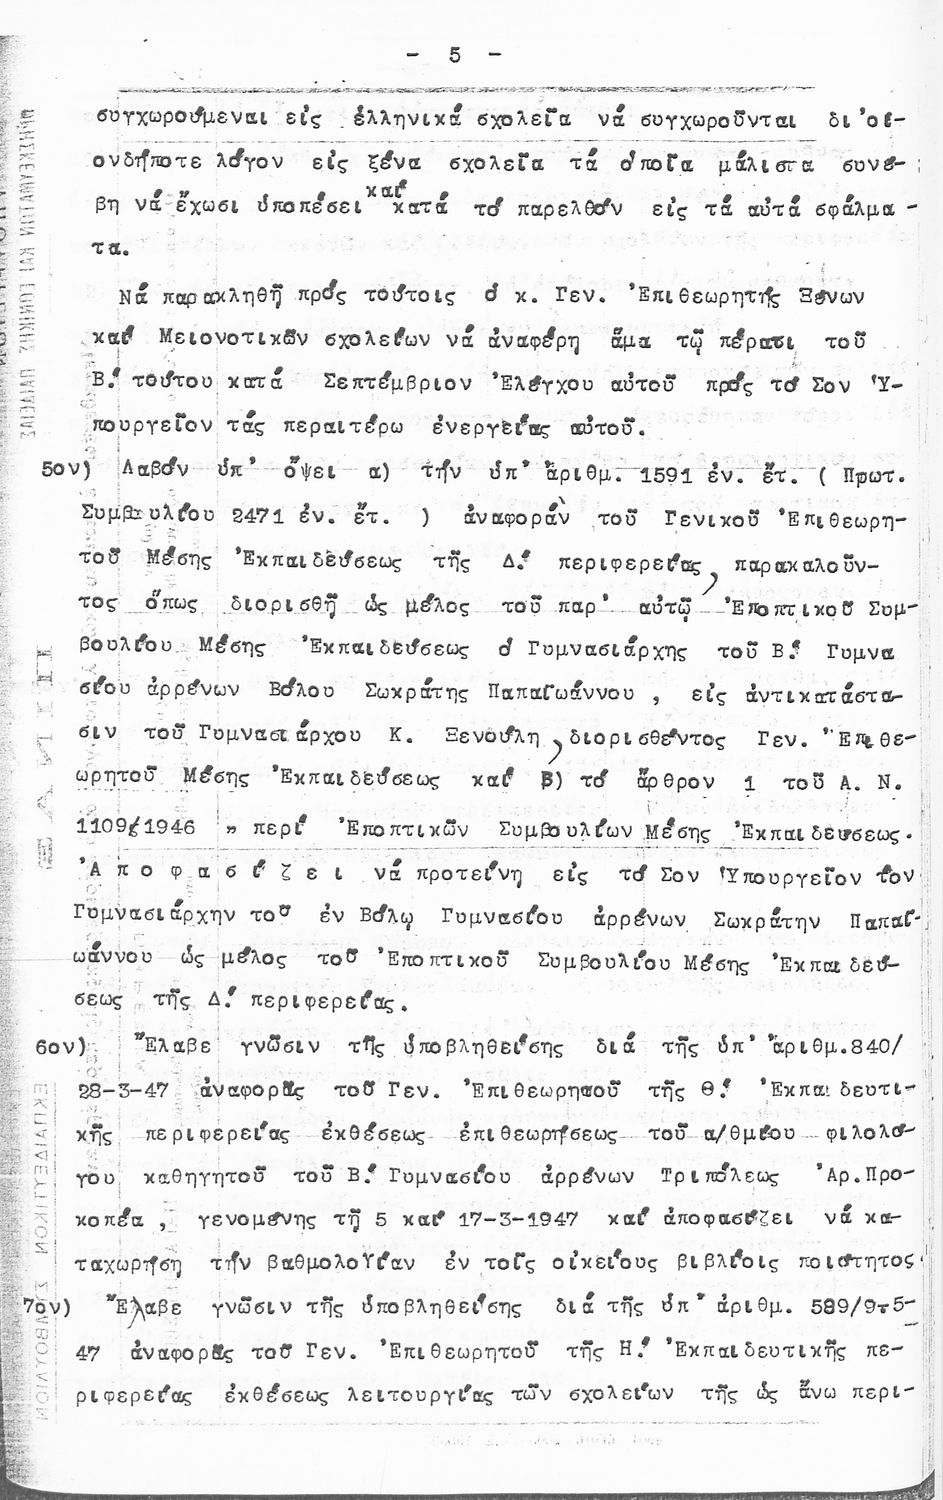 - 5 -
συγχωρούμεναι εἰς ἑλληνικά σχολεῖα νά συγχωροῦνται δι'οἱ-
ονδήποτε λόγον εἰς ξένα σχολεῖα τά ὁποῖα μάλιστα συνέ-
βη νά ἔχωσι ὑποπέσει καί κατά τό παρελθόν εἰς τά αὐτά σφάλμα-
τα.
Νά παρακληθῇ πρός τούτοις ὁ κ. Γεν. Ἐπιθεωρητής Ξένων
καί Μειονοτικῶν σχολείων νά ἀναφέρῃ ἅμα τῷ πέρατι τοῦ
Β.' τούτου κατά Σεπτέμβριον Ἐλέγχου αὐτοῦ πρός τό Σον Ὑ-
πουργεῖον τάς περαιτέρω ἐνεργείας αὐτοῦ.
5ον) Λαβόν ὑπ' ὄψει α) τήν ὑπ' ἀριθμ. 1591 ἐν. ἔτ. ( Πρωτ.
Συμβουλίου 2471 ἐν. ἔτ. ) ἀναφοράν τοῦ Γενικοῦ Ἐπιθεωρη-
τοῦ Μέσης Ἐκπαιδεύσεως τῆς Δ.' περιφερείας, παρακαλοῦν-
τος ὅπως διορισθῇ ὡς μέλος τοῦ παρ' αὐτῷ Ἐποπτικοῦ Συμ-
βουλίου Μέσης Ἐκπαιδεύσεως ὁ Γυμνασιάρχης τοῦ Β.' Γυμνα
σίου ἀρρένων Βόλου Σωκράτης Παπαϊωάννου , εἰς ἀντικατάστα-
σιν τοῦ Γυμνασιάρχου Κ. Ξενούλη, διορισθέντος Γεν. Ἐπιθε-
ωρητοῦ Μέσης Ἐκπαιδεύσεως καί β) τό ἄρθρον 1 τοῦ Α. Ν.
1109/1946 " περί Ἐποπτικῶν Συμβουλίων Μέσης Ἐκπαιδεύσεως.
Ἀ π ο φ α σ ί ζ ε ι νά προτείνῃ εἰς τό Σον Ὑπουργεῖον τόν
Γυμνασιάρχην τοῦ ἐν Βόλῳ Γυμνασίου ἀρρένων Σωκράτην Παπαϊ-
ωάννου ὡς μέλος τοῦ Ἐποπτικοῦ Συμβουλίου Μέσης Ἐκπαιδεύ-
σεως τῆς Δ.' περιφερείας.
6ον) Ἔλαβε γνῶσιν τῆς ὑποβληθείσης διά τῆς ὑπ' ἀριθμ.840/
28-3-47 ἀναφορᾶς τοῦ Γεν. Ἐπιθεωρητοῦ τῆς Θ.' Ἐκπαιδευτι-
κῆς περιφερείας ἐκθέσεως ἐπιθεωρήσεως τοῦ α/θμίου φιλολό-
γου καθηγητοῦ τοῦ Β.' Γυμνασίου ἀρρένων Τριπόλεως Ἀρ.Προ-
κοπέα , γενομένης τῇ 5 καί 17-3-1947 καί ἀποφασίζει νά κα-
ταχωρήσῃ τήν βαθμολογίαν ἐν τοῖς οἰκείοις βιβλίοις ποιότητος.
7ον) Ἔλαβε γνῶσιν τῆς ὑποβληθείσης διά τῆς ὑπ' ἀριθμ. 589/9-5-
47 ἀναφορᾶς τοῦ Γεν. Ἐπιθεωρητοῦ τῆς Η.' Ἐκπαιδευτικῆς πε-
ριφερείας ἐκθέσεως λειτουργίας τῶν σχολείων τῆς ὡς ἄνω περι-